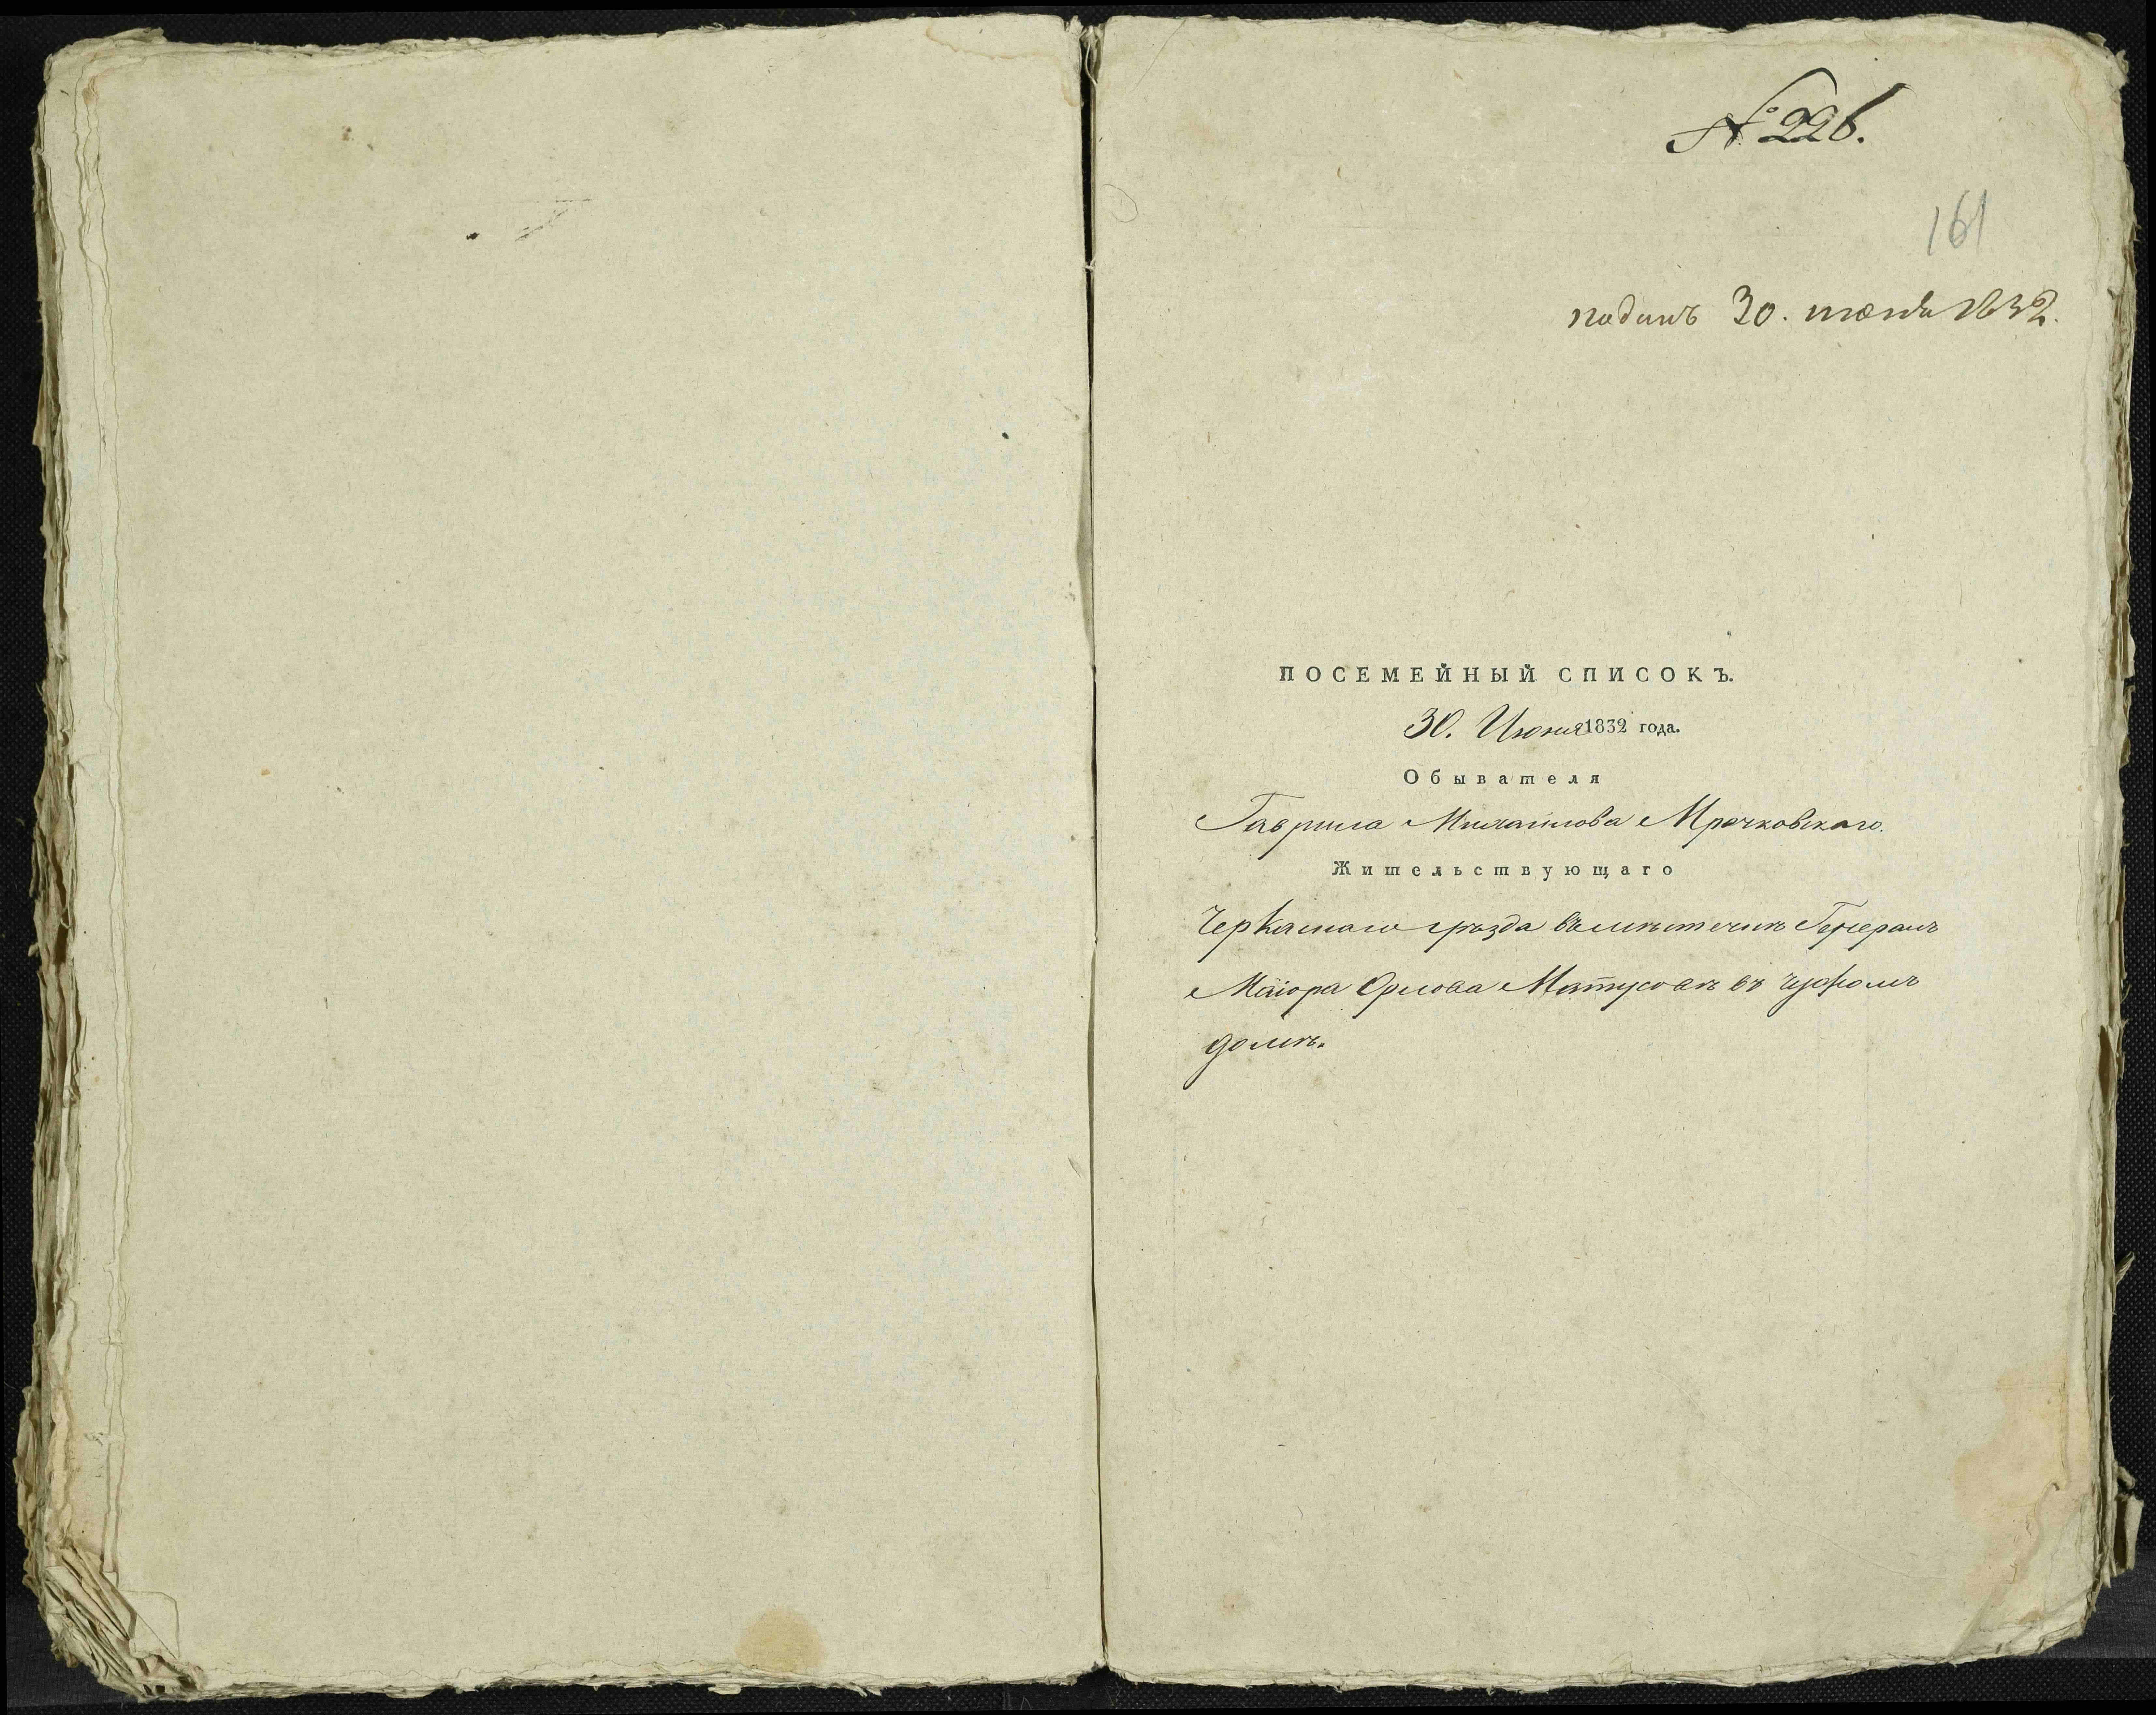 № 226.
161
поданъ 30. июня 1832.
ПОСЕМЕЙНЫЙ СПИСОКЪ.
30. Июня 1832 года.
Обывателя
Гаврила Михайлова Мрачковскаго.
Жительствующаго
Черкаскаго уѣзда въ мѣстечкѣ Генералъ
Маіора Орлова Матусовѣ въ чужомъ
домѣ.